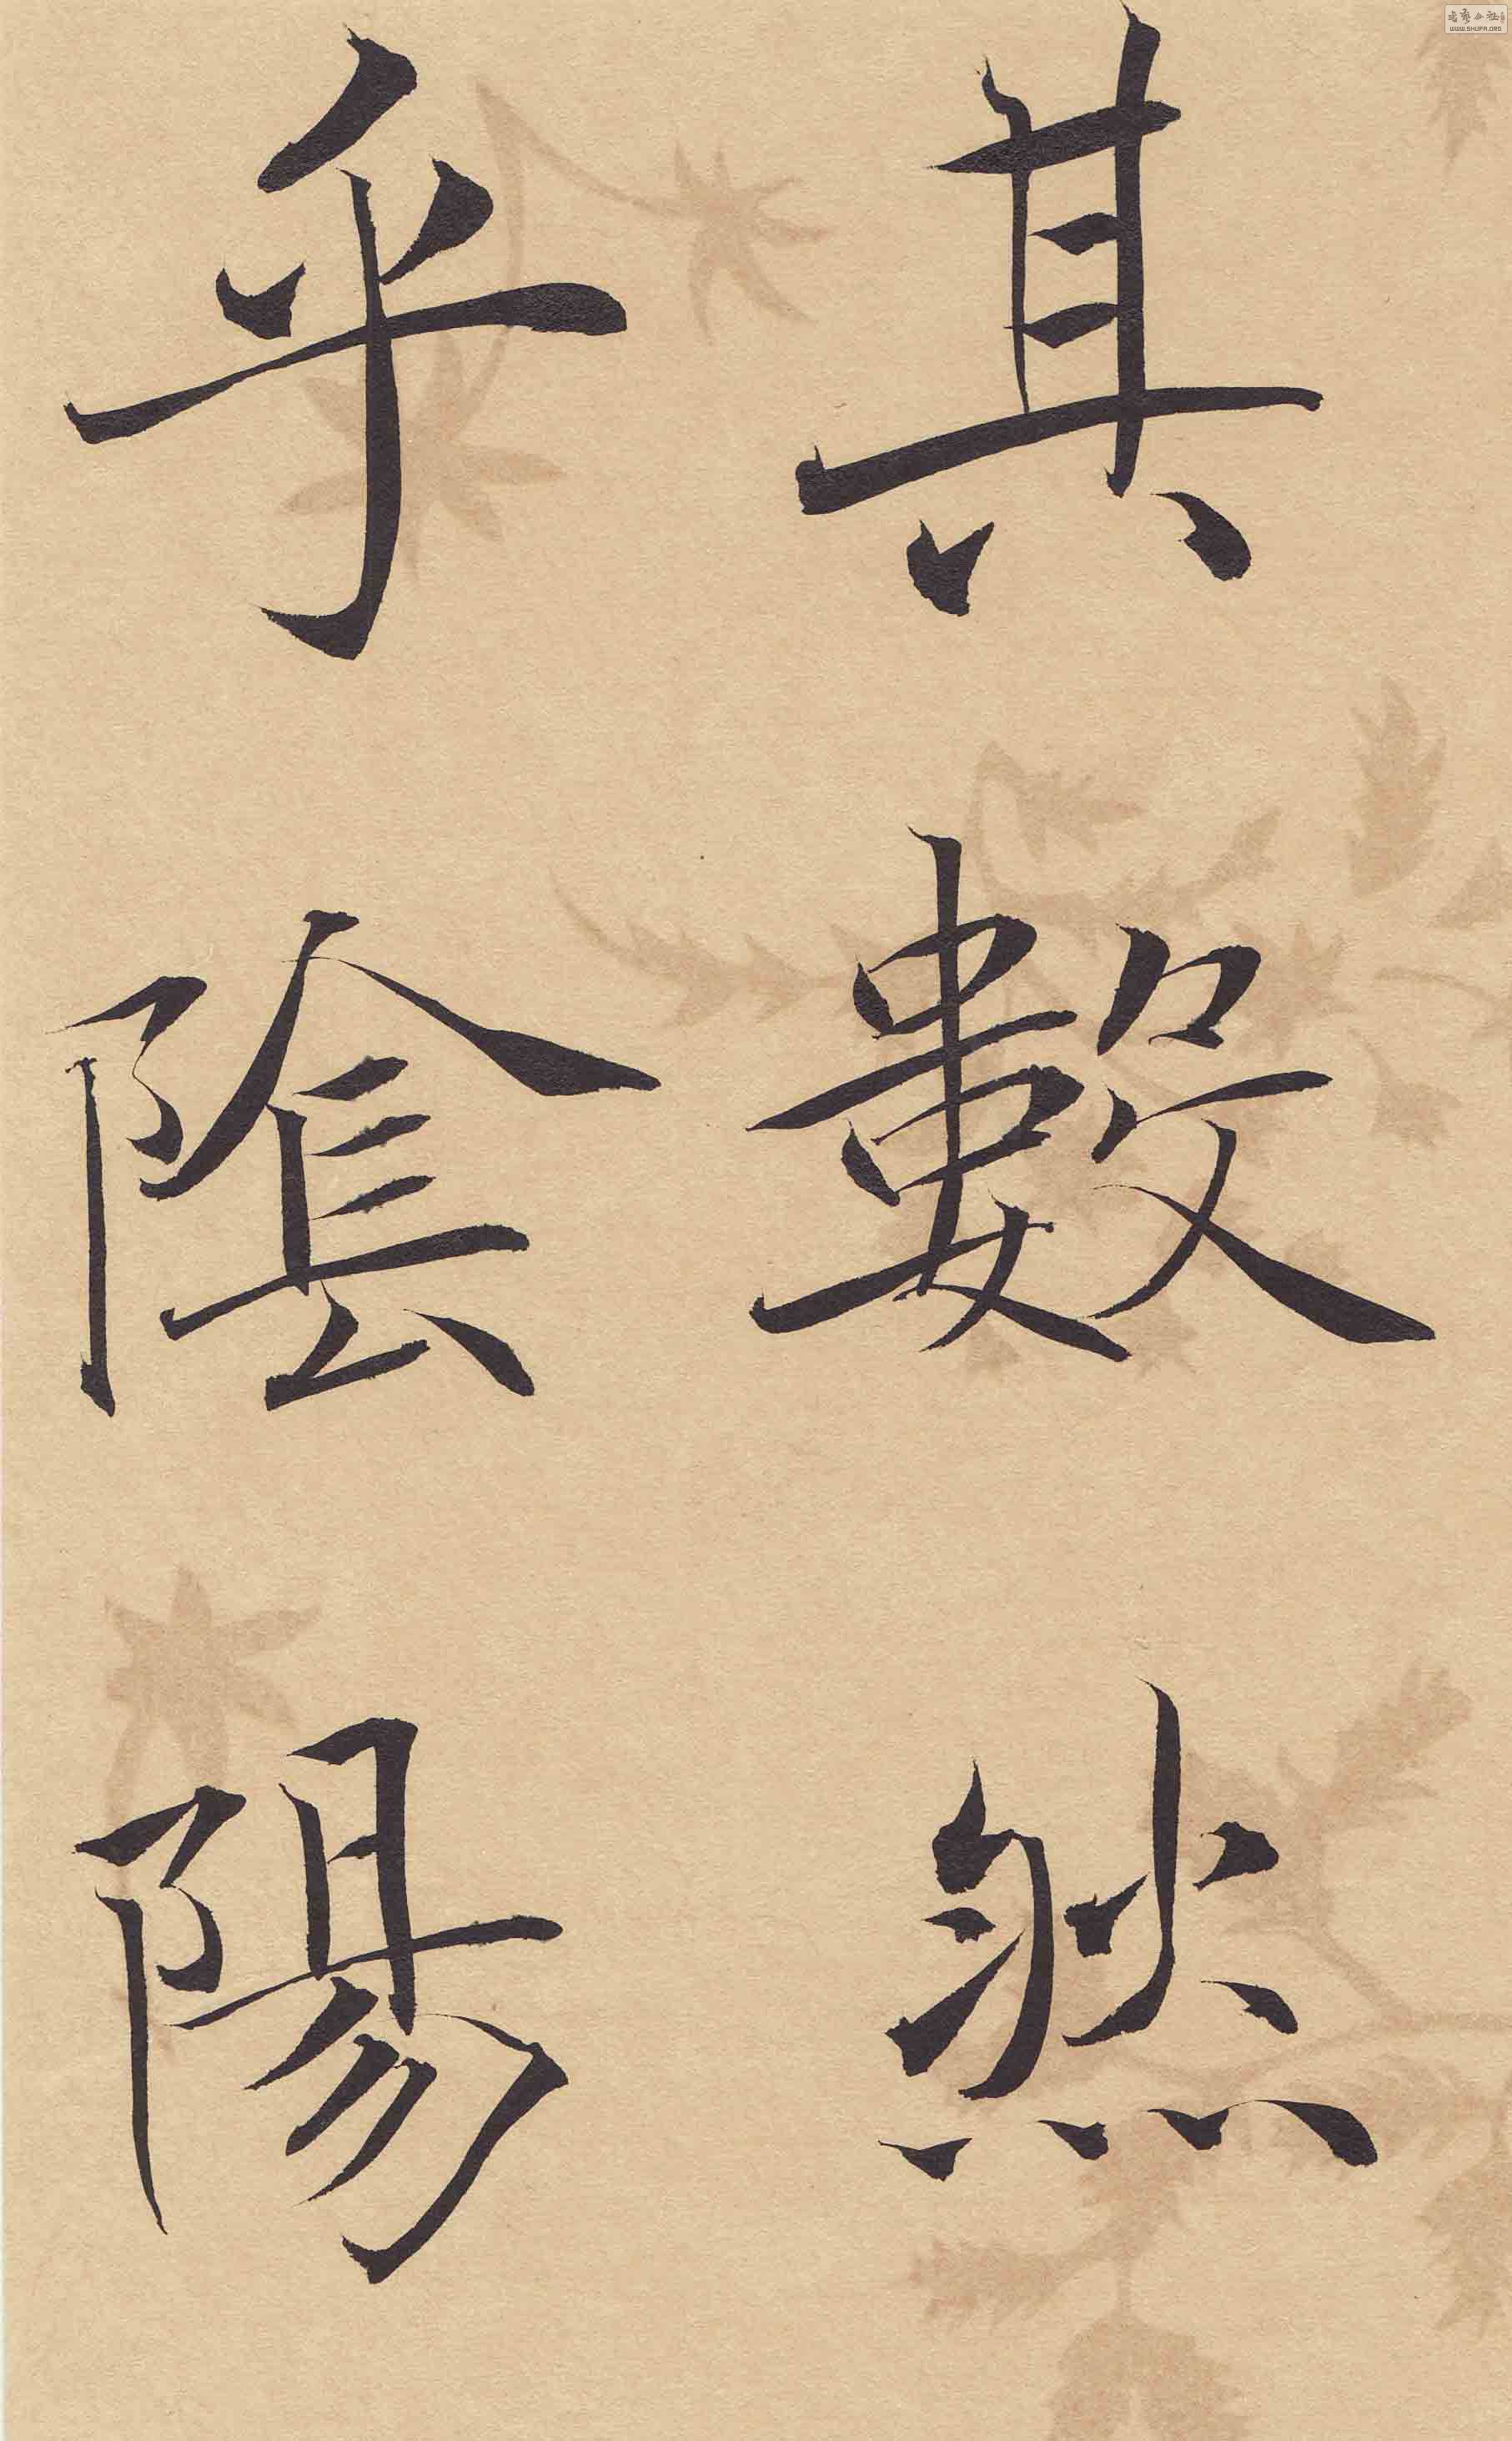 其數然
乎陰陽
WWW.SHUFA.ORG